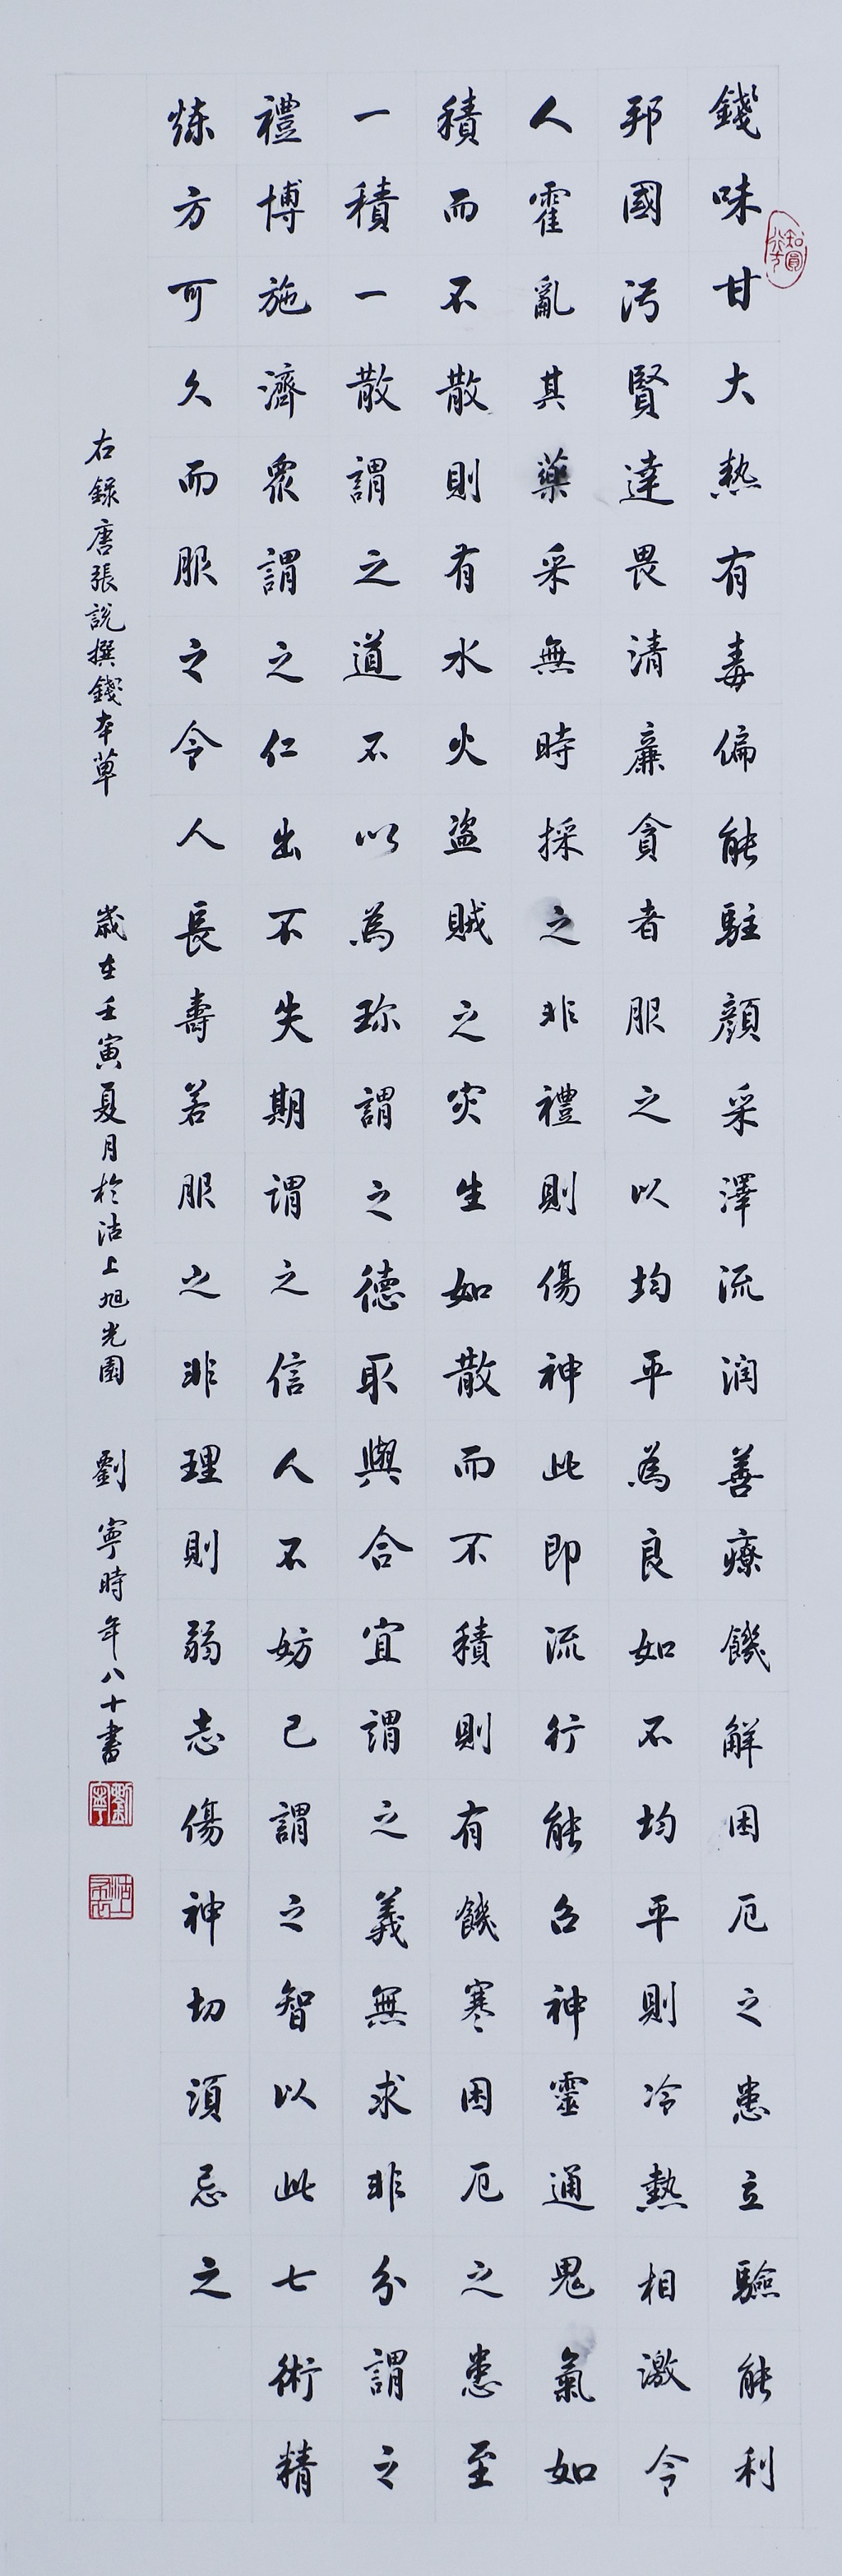 錢味甘大熱有毒偏能駐顏采澤流润善療饑解困厄之患立驗能利
邦國污賢達畏清廉貪者服之以均平為良如不均平則冷熱相激令
人霍亂其藥采無時採之非禮則傷神此即流行能召神靈通鬼氣如
積而不散則有水火盜賊之灾生如散而不積則有饑寒困厄之患至
一積一散謂之道不以為珎謂之德取與合宜謂之義無求非分謂之
禮博施濟眾謂之仁出不失期谓之信人不妨己謂之智以此七術精
煉方可久而服之令人長壽若服之非理則弱志傷神切須忌之
右錄唐張說撰錢本草
歲在壬寅夏月於沽上旭光園 劉寧時年八十書
知圓行方
劉寧